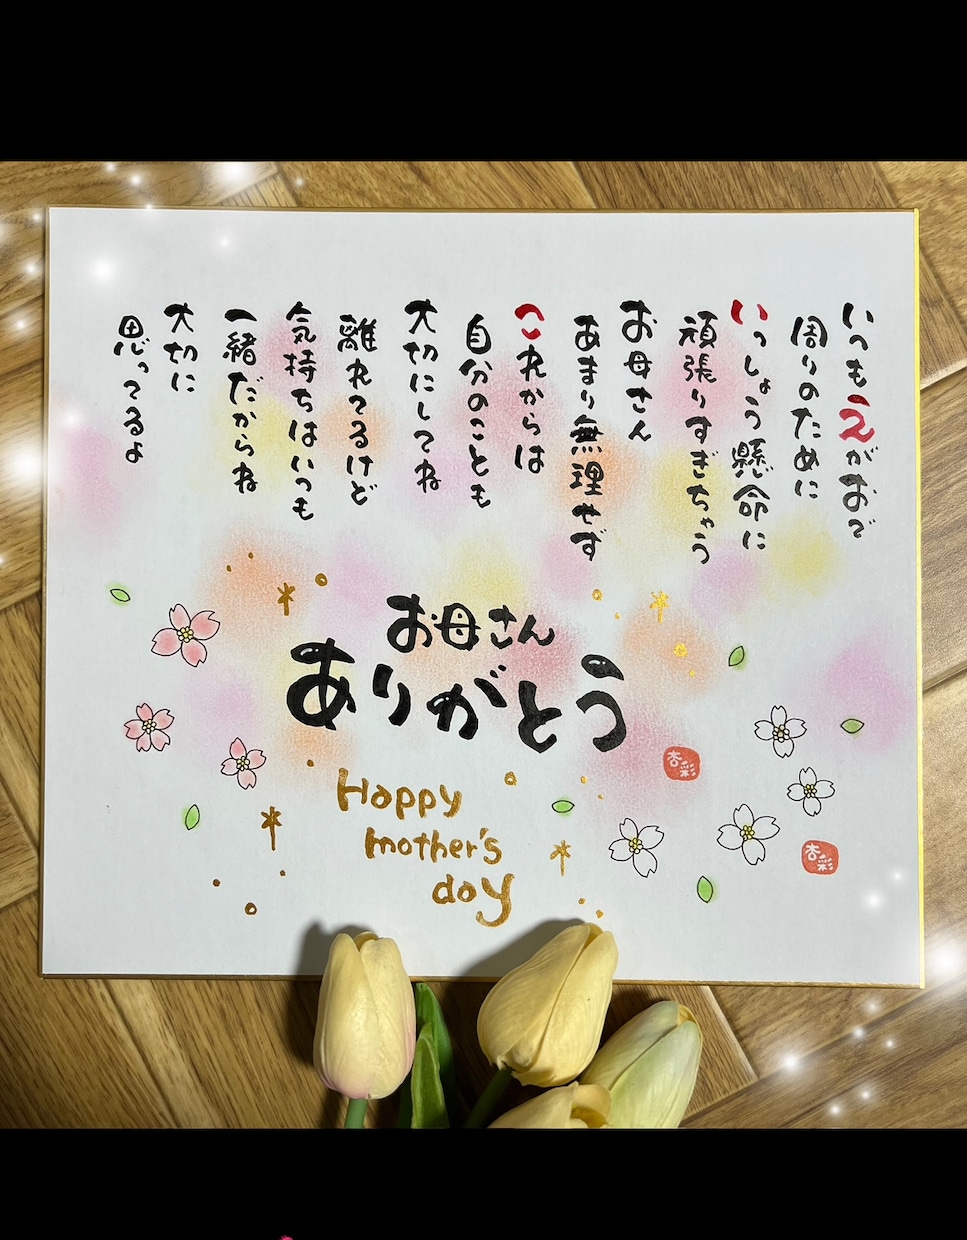 いつもえがおで
周りのために
いっしょう懸命に
頑張りすぎちゃう
お母さん
あまり無理せず
これからは
自分のことも
大切にしてね
離れてるけど
気持ちはいつも
一緒だからね
大切に
思ってるよ
お母さん
ありがとう
Happy
mother's
day
杏彩
杏彩